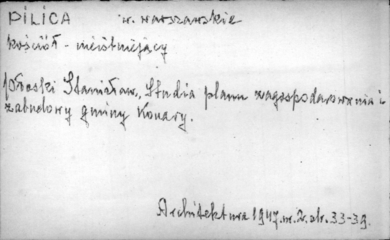 PILICA w. warszawskie
kościół - nieistniejący
Płoski Stanisław, Studia planu zagospodarowania i
zabudowy gminy Konary.
Architektura 1947.nr.2.str.33-39.